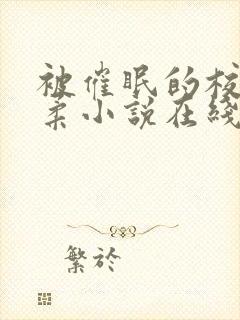 被催眠的校
柔小說在綫
繁於